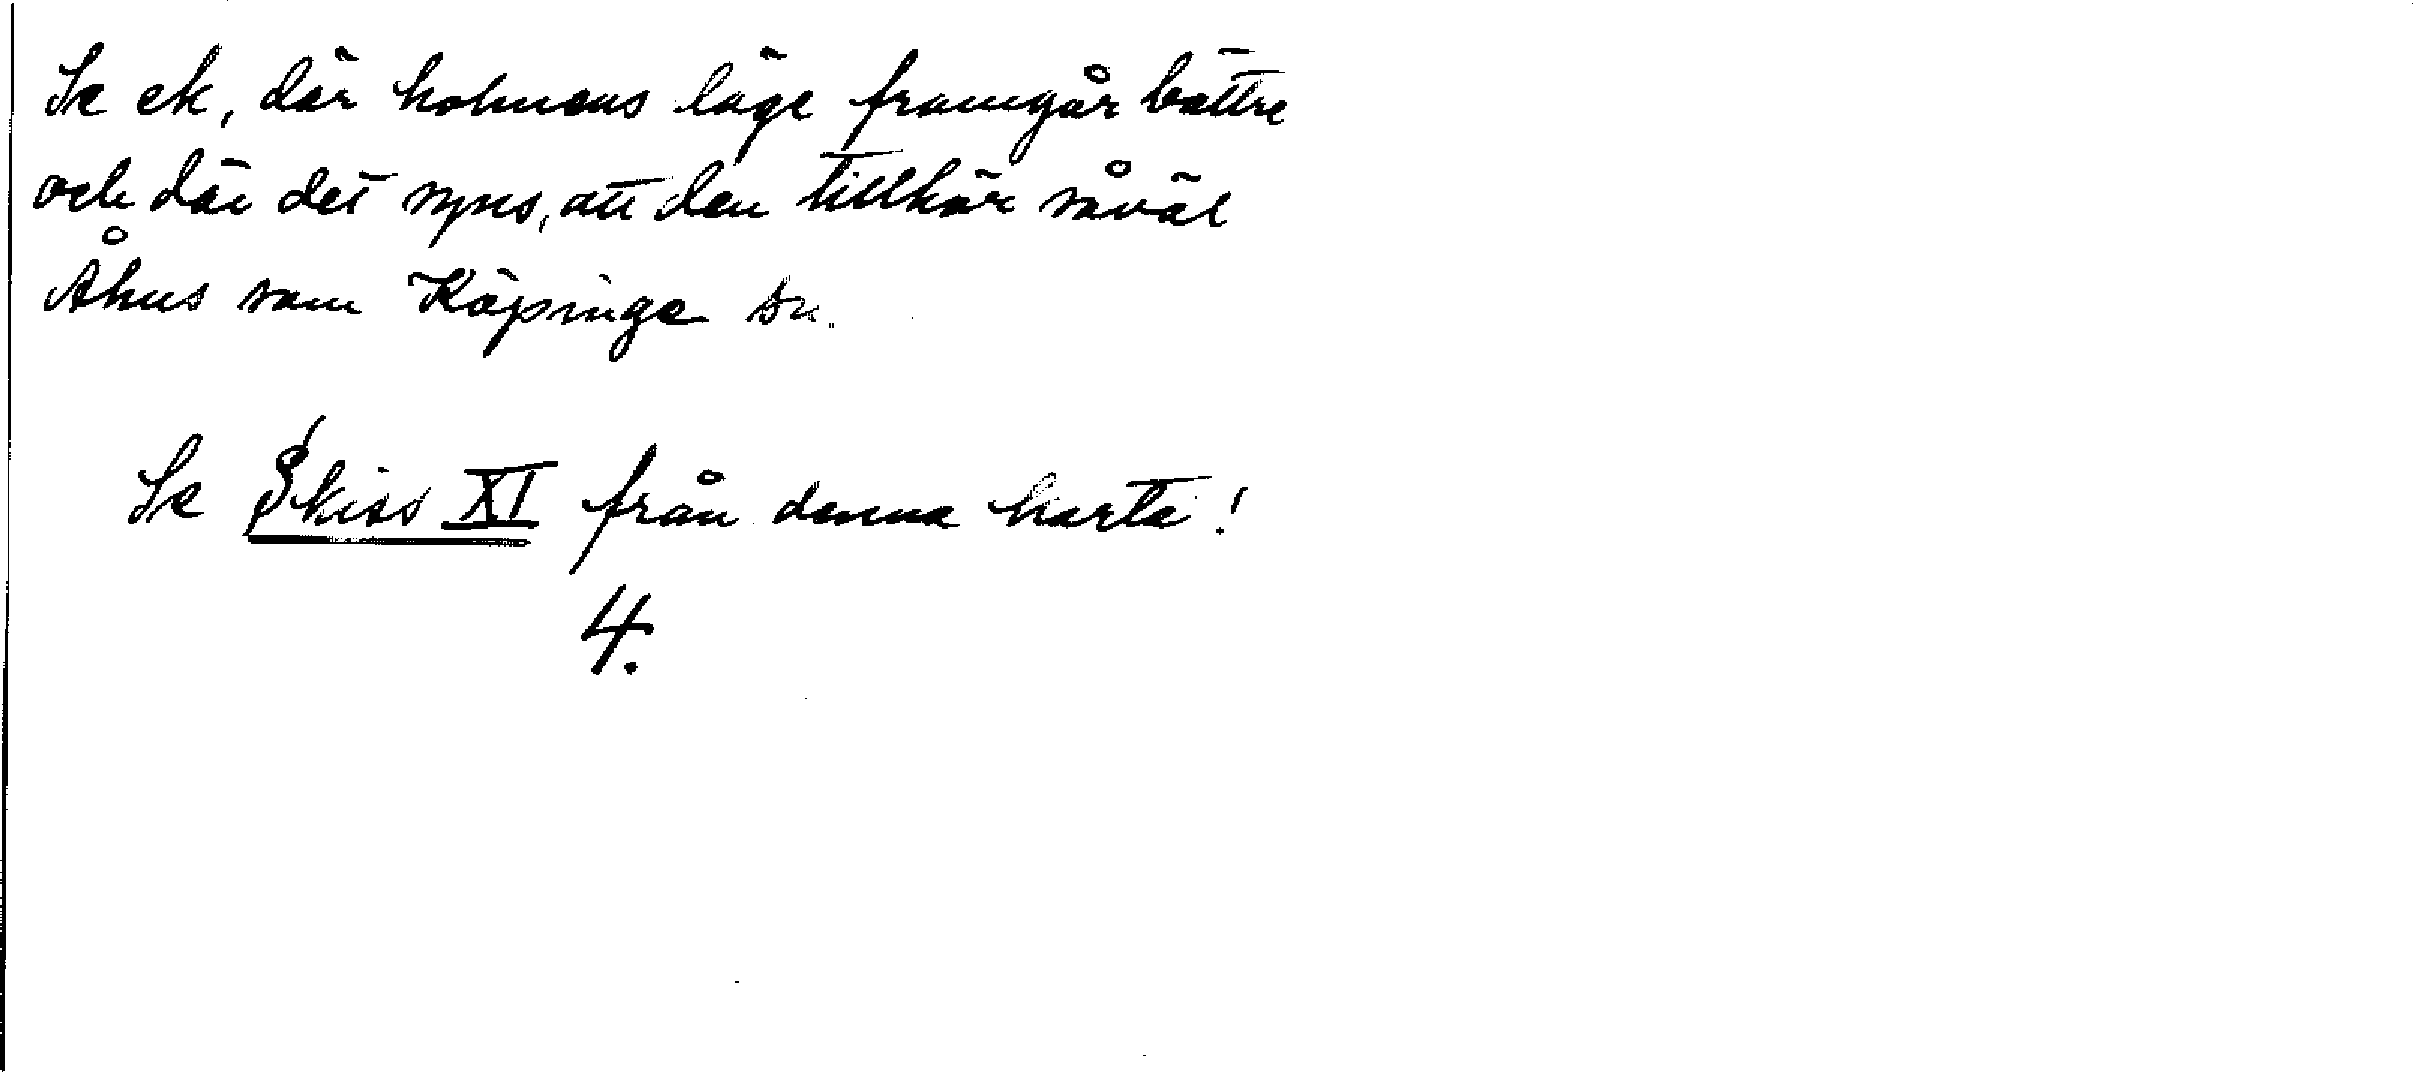 Se ek, där holmens läge framgår bättre
och där det synes, att den tillhör såväl
Åhus som Köpinge sn.
Se Skiss XI från denna karta!
4.